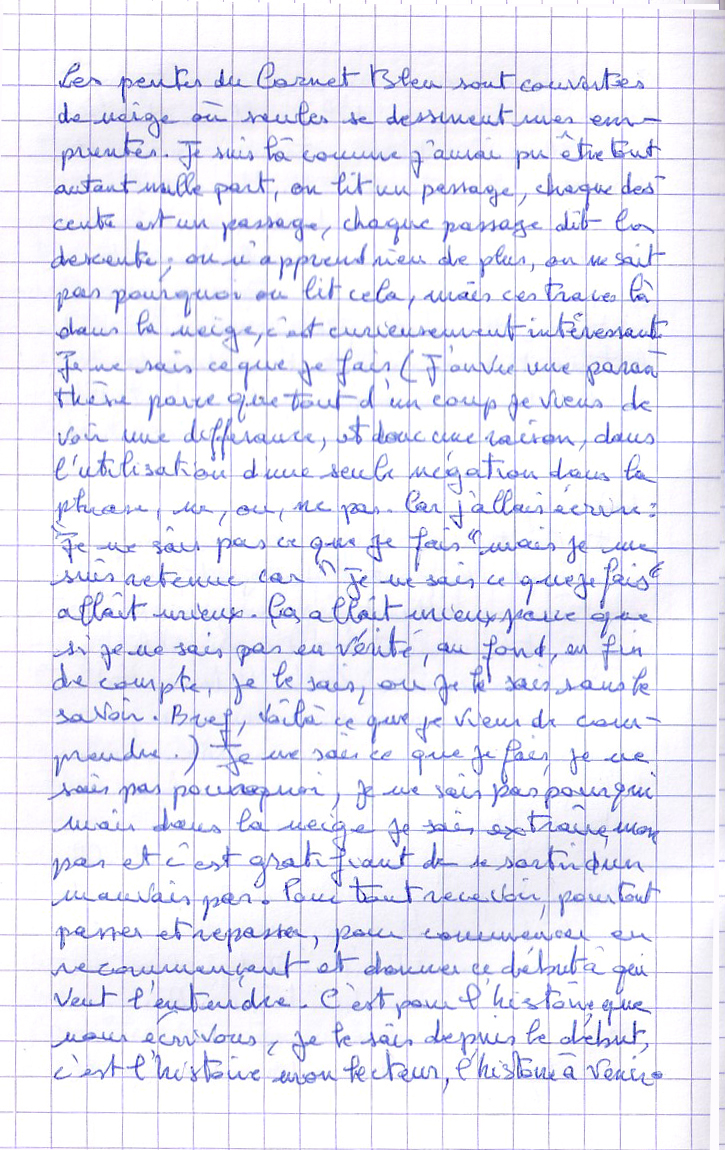 Les pentes du Carnet Bleu sont couvertes
de neige où seules se dessinent mes em-
preintes. Je suis là comme j'aurai pu être tout
autant nulle part, on lit un passage, chaque des-
cente est un passage, chaque passage dit la
descente ; on n'apprend rien de plus, on ne sait
pas pourquoi on lit cela, mais ces traces là
dans la neige, c'est curieusement intéressant
Je ne sais ce que je fais (J'ouvre une paran
thèse parce que tout d'un coup je viens de
voir une différance, et donc une raison, dans
l'utilisation d'une seule négation dans la
phrase, ne, ou, ne pas. Car j'allais écrire :
"Je ne sais pas ce que je fais" mais je me
suis retenue car "Je ne sais ce que je fais"
allait mieux. Ca allait mieux parce que
si je ne sais pas en vérité, au fond, en fin
de compte, je le sais, ou je le sais sans le
savoir. Bref, voilà ce que je viens de com-
prendre.) Je ne sais ce que je fais, je ne
sais pas pourquoi, je ne sais pas pour qui
mais dans la neige je sais extraire mon
pas et c'est gratifiant de se sortir d'un
mauvais pas. Pour tout recevoir, pour tout
passer et repasser, pour commencer en
recommençant et donner ce début à qui
veut l'entendre. C'est pour l'histoire que
nous écrivons, je le sais depuis le début,
c'est l'histoire mon lecteur, l'histoire à venir.